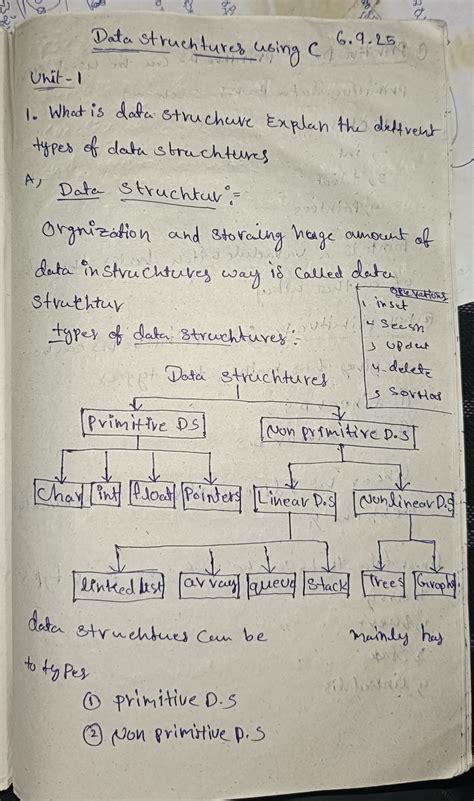 Data Struchtures using C 6.9.25
Unit-1
1. What is data Struchure Explan the different
types of data struchtures
A, Data Struchtur :=
Orgnization and storaing hage amount of
data in struchtures way is called data
Struchtur
Operations
1 insert
2 Search
3 Updeat
4 delete
5 Sorting
types of data struchtures :-
Data Struchtures
Primitive DS
Non primitive D.S
Char
int
float
Pointers
Linear D.S
Nonlinear D.S
linked list
array
queue
Stack
Trees
Graphs
data Struchtues Can be mainly has
to types
① primitive D.S
② Non primitive D.S